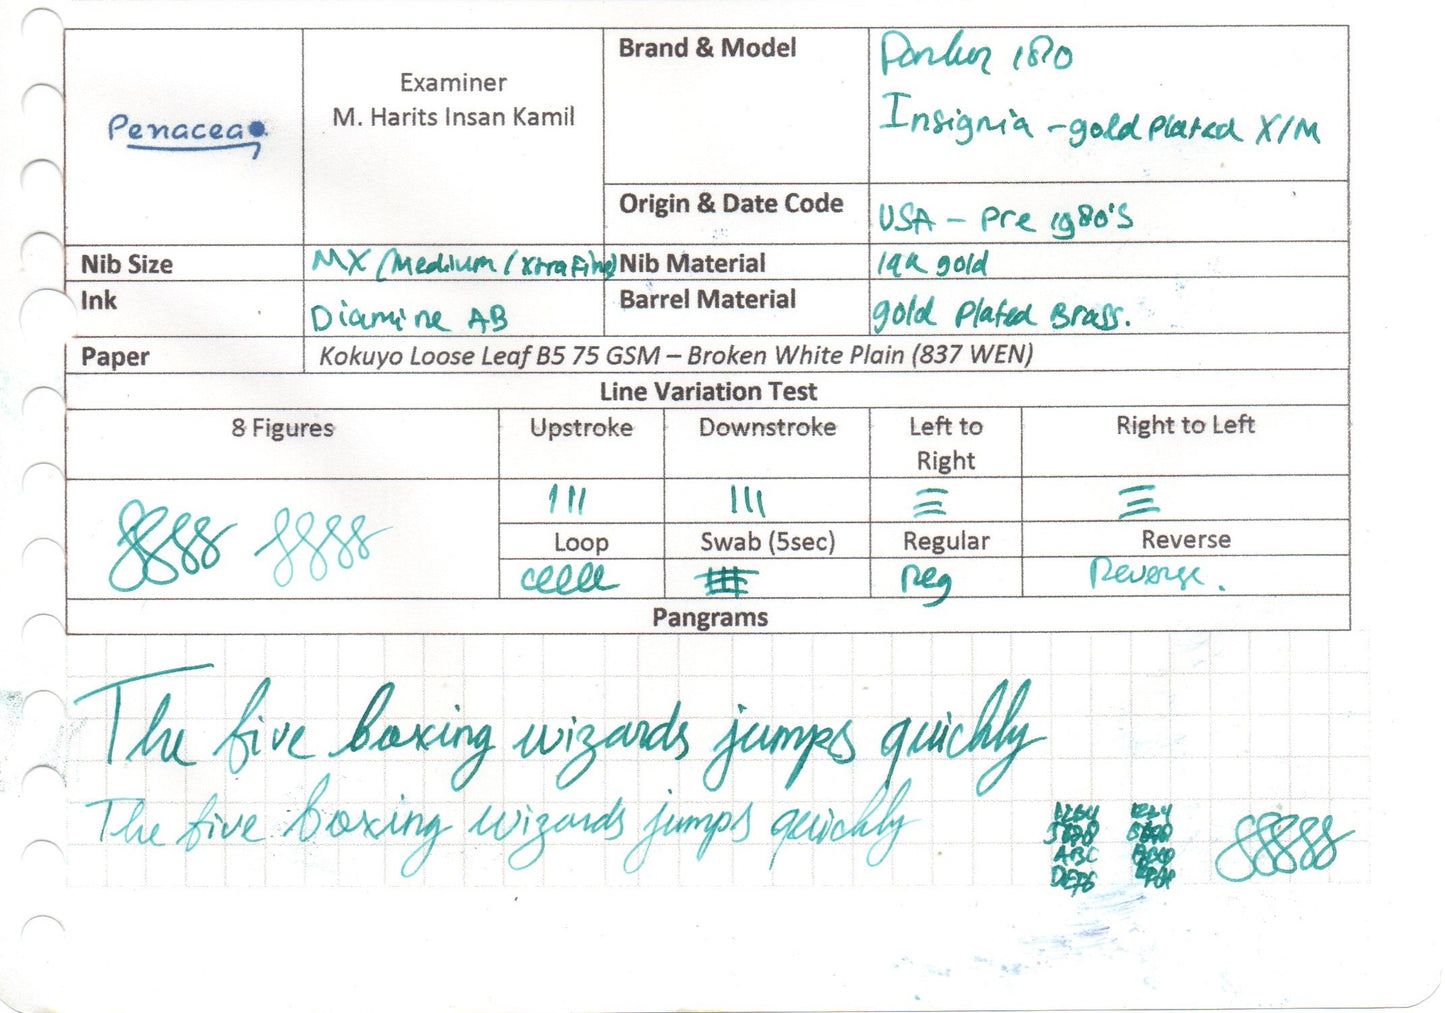 Penacea
Examiner
M. Harits Insan Kamil
Brand & Model
Parker 180
Insignia - gold Plated X/M
Origin & Date Code
USA - Pre 1980's
Nib Size
MX (Medium / XtraFine)
Nib Material
14k gold
Ink
Diamine AB
Barrel Material
gold Plated Brass.
Paper
Kokuyo Loose Leaf B5 75 GSM – Broken White Plain (837 WEN)
Line Variation Test
8 Figures
Upstroke
Downstroke
Left to
Right
Right to Left
Loop
Swab (5sec)
Regular
Reverse
Reg
Reverse.
Pangrams
The five boxing wizards jumps quickly
The five boxing wizards jumps quickly
1234
5678
ABC